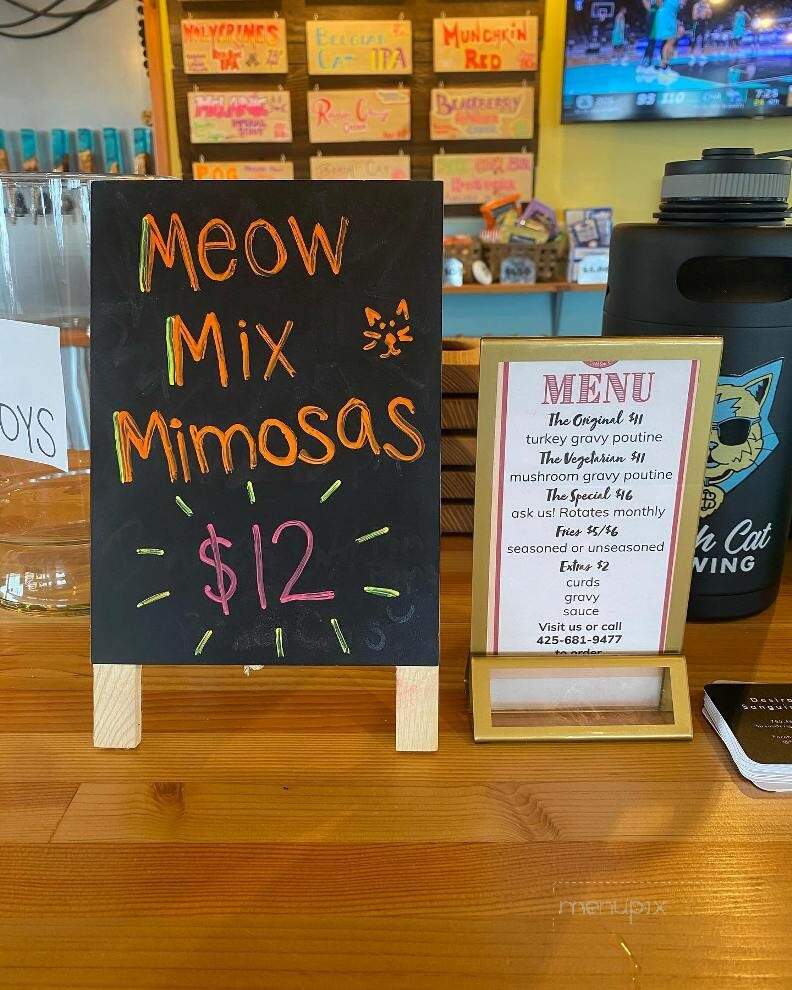 WOLVERINES
IPA
BELGIAN
CAT IPA
MUNCHKIN
RED
IMPERIAL
STOUT
BLACKBERRY
POG
93 110
7:25
Meow
Mix
Mimosas
$12
OYS
MENU
The Original $11
turkey gravy poutine
The Vegetarian $11
mushroom gravy poutine
The Special $16
ask us! Rotates monthly
Fries $5/$6
seasoned or unseasoned
Extras $2
curds
gravy
sauce
Visit us or call
425-681-9477
to order
h Cat
WING
menupix